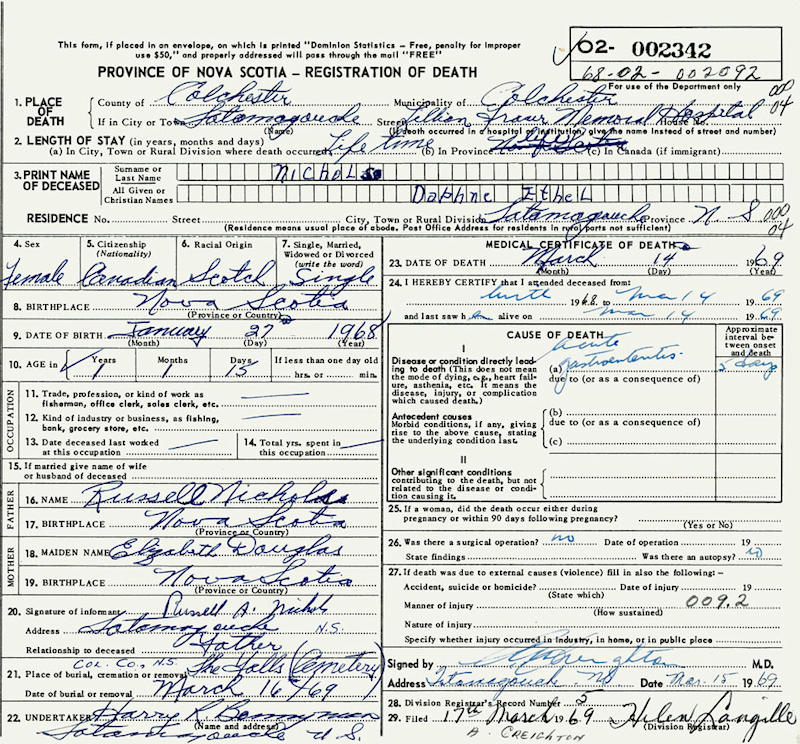 This form, if placed in an envelope, on which is printed "Dominion Statistics – Free, penalty for improper
use $50," and properly addressed will pass through the mail "FREE"
PROVINCE OF NOVA SCOTIA – REGISTRATION OF DEATH
02- 002342
68-02-002092
For use of the Department only
000
04
1. PLACE OF DEATH County of Colchester Municipality of Colchester
If in City or Town Tatamagouche Street Lillian Fraser Memorial Hospital House No.
(Name) (If death occurred in a hospital or institution, give the name instead of street and number)
2. LENGTH OF STAY (in years, months and days)
(a) In City, Town or Rural Division where death occurred Life time (b) In Province Nova Scotia (c) In Canada (if immigrant)
3. PRINT NAME OF DECEASED Surname or Last Name NICHOLS
All Given or Christian Names DAPHNE ETHEL
RESIDENCE No. Street City, Town or Rural Division Tatamagouche Province N. S 000
04
(Residence means usual place of abode. Post Office Address for residents in rural parts not sufficient)
4. Sex 5. Citizenship (Nationality) 6. Racial Origin 7. Single, Married, Widowed or Divorced (write the word)
Female Canadian Scotch Single
8. BIRTHPLACE Nova Scotia
(Province or Country)
9. DATE OF BIRTH January 27 1968
(Month) (Day) (Year)
10. AGE in Years 1 Months 1 Days 15 If less than one day old
hrs. or min.
OCCUPATION
11. Trade, profession, or kind of work as
fisherman, office clerk, sales clerk, etc.
12. Kind of industry or business, as fishing,
bank, grocery store, etc.
13. Date deceased last worked at this occupation 14. Total yrs. spent in this occupation
15. If married give name of wife
or husband of deceased
FATHER
16. NAME Russell Nichols
17. BIRTHPLACE Nova Scotia
(Province or Country)
MOTHER
18. MAIDEN NAME Elizabeth Douglas
19. BIRTHPLACE Nova Scotia
(Province or Country)
20. Signature of informant Russell A. Nichols
Address Tatamagouche N.S.
Relationship to deceased Father
Col. Co., N.S.
21. Place of burial, cremation or removal The Falls (Cemetery)
Date of burial or removal March 16/69
22. UNDERTAKER Harry R
(Name and address)
Tatamagouche N.S.
MEDICAL CERTIFICATE OF DEATH
23. DATE OF DEATH March 14 1969
(Month) (Day) (Year)
24. I HEREBY CERTIFY that I attended deceased from:
birth 1968 to Mar 14 1969
and last saw h alive on Mar 14 1969.
CAUSE OF DEATH Approximate interval between onset and death
I
Disease or condition directly leading to death (This does not mean the mode of dying, e.g., heart failure, asthenia, etc. It means the disease, injury, or complication which caused death.)
(a) acute gastroenteritis. 5 days
due to (or as a consequence of)
Antecedent causes
Morbid conditions, if any, giving rise to the above cause, stating the underlying condition last.
(b)
due to (or as a consequence of)
(c)
II
Other significant conditions
contributing to the death, but not related to the disease or condition causing it.
25. If a woman, did the death occur either during
pregnancy or within 90 days following pregnancy?
(Yes or No)
26. Was there a surgical operation? no Date of operation 19
State findings Was there an autopsy? no
27. If death was due to external causes (violence) fill in also the following:–
Accident, suicide or homicide? Date of injury 19
(State which)
Manner of injury 009.2
(How sustained)
Nature of injury
Specify whether injury occurred in Industry, in home, or in public place
Signed by Creighton M.D.
Address Tatamagouche NS Date Mar. 15 1969
28. Division Registrar's Record Number 5
29. Filed 17th March 1969 Helen Langille
(Division Registrar)
A. CREIGHTON